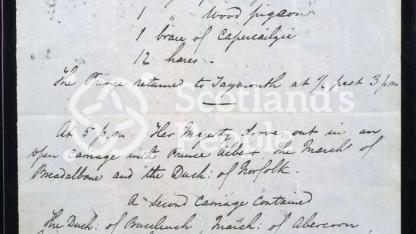 1 " Wood pigeon
1 brace of Capercailzie
12 hares. -
The Prince returned to Taymouth at ½ past 3 p.m.
At 5 p.m. Her Majesty drove out in an
open carriage with Prince Albert the March: of
Breadalbane and the Duch: of Norfolk.
A second Carriage contained
The Duch: of Buccleuch, March: of Abercorn,
Scotland's